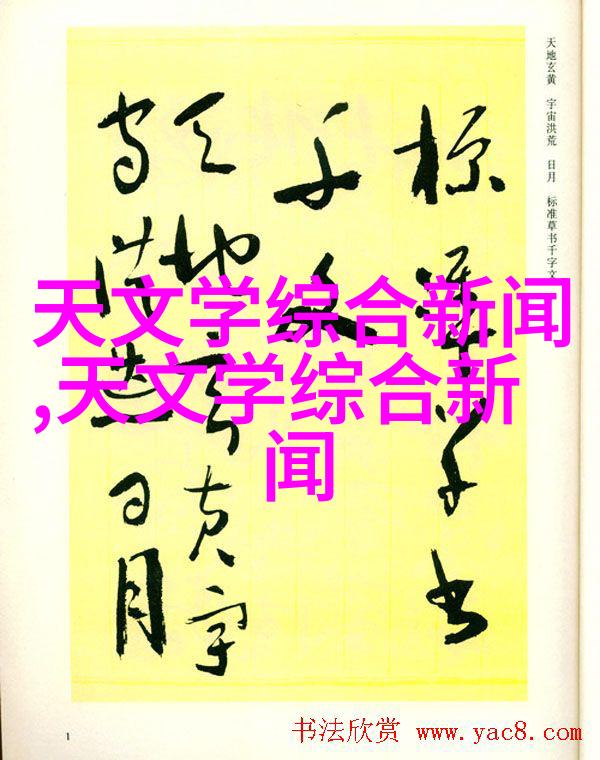 天地玄黄　宇宙洪荒　日月　标准草书千字文
標準草書
千文
天地玄黄宇
宙洪荒日月
天文学综合新闻
,天文学综合新
闻
1
书法欣赏 www.yac8.com